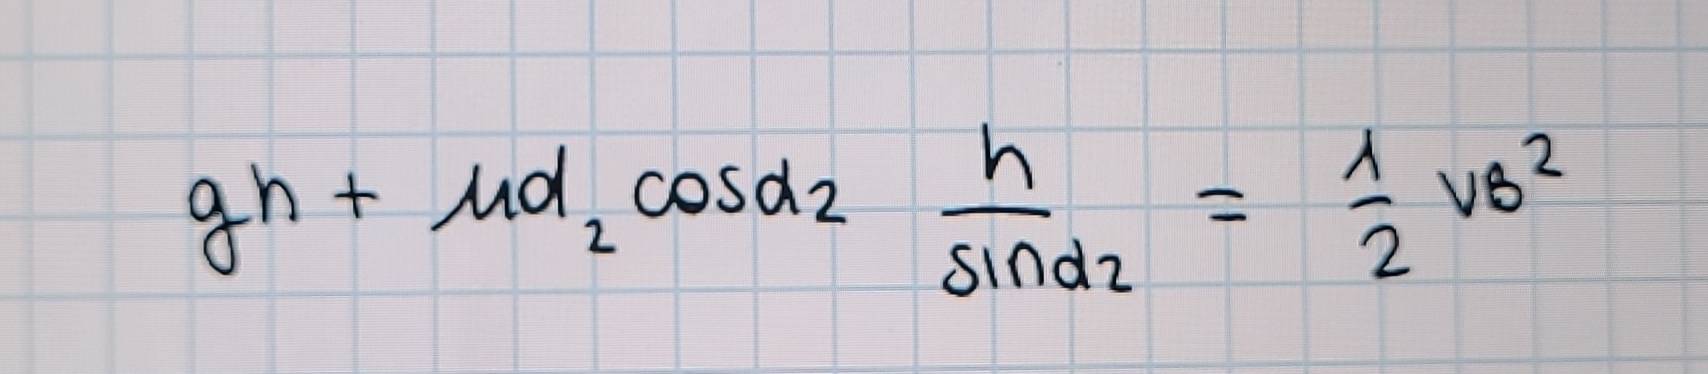 gh + μd₂ cosd2 h/sind2 = 1/2 vB²